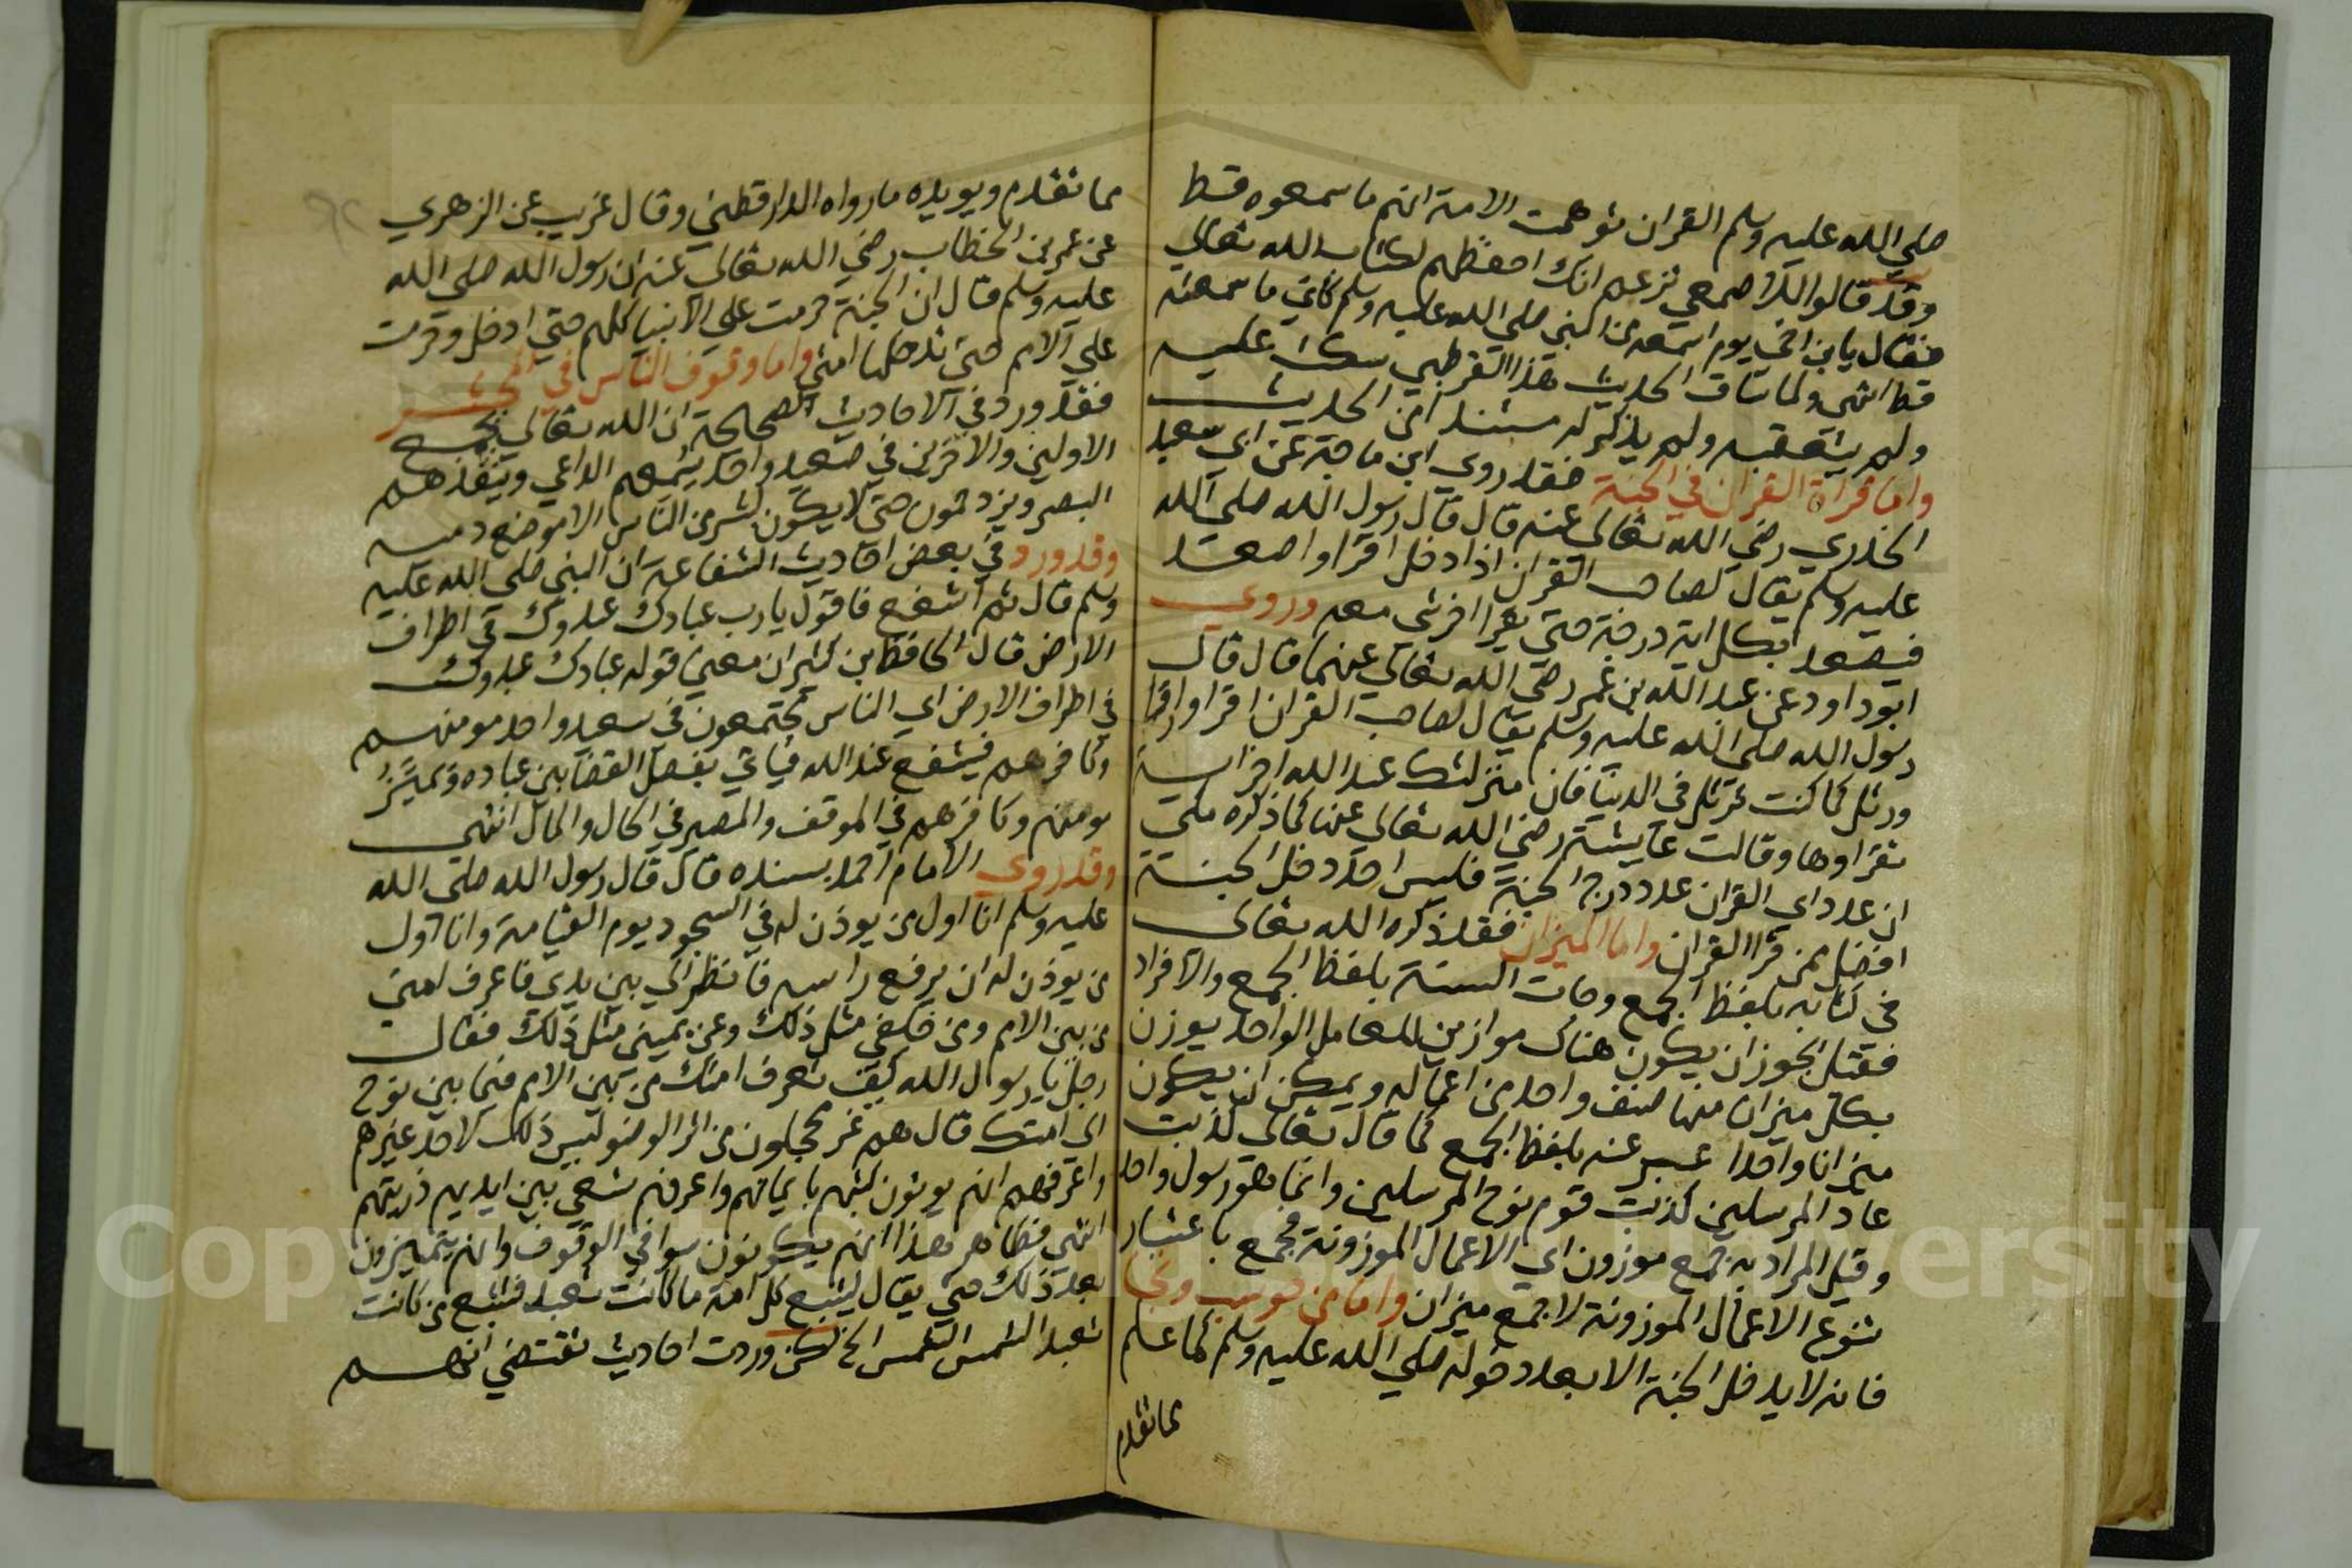 صلي الله عليه وسلم القران توهمت الامة انهم ما سمعوه قط
وقد قالوا للاصمعي تزعم انك احفظهم لكتاب الله تعالي
فقال يا بن اخي يوم اسمعه من النبي صلي الله عليه وسلم كاني ما سمعته
قط انتهي ولما ساق الحديث هذا القرطبي سكت عليه
ولم يتعقبه ولم يذكر له مستندا من الحديث
واما قراة القران في الجنة فقد روي ابن ماجة عن ابي سعيد
الخدري رضي الله تعالي عنه قال قال رسول الله صلي الله
عليه وسلم يقال لصاحب القران اذا دخل اقرا واصعد
فيصعد بكل اية درجة حتي يقرا اخر شي معه وروي
ابو داود عن عبد الله بن عمر رضي الله تعالي عنهما قال قال
رسول الله صلي الله عليه وسلم يقال لصاحب القران اقرا وارقا
ورتل كما كنت ترتل في الدنيا فان منزلتك عند الله اخر اية
تقراوها وقالت عايشة رضي الله تعالي عنها كما ذكره مكي
ان عدد اي القران عدد درج الجنة فليس احد دخل الجنة
افضل ممن قرا القران واما الميزان فقد ذكره الله تعالي
في كتابه بلفظ الجمع وجات السنة بلفظ الجمع والافراد
فقيل يجوز ان يكون هناك موازين للعامل الواحد يوزن
بكل ميزان منها صنف واحد من اعماله ويمكن ان يكون
ميزانا واحدا عبر عنه بلفظ الجمع كما قال تعالي كذبت
عاد المرسلين كذبت قوم نوح المرسلين وانما هو رسول واحد
وقيل المراد به جمع موزون اي الاعمال الموزونة فجمع باعتبار
تنوع الاعمال الموزونة لا جمع ميزان واما من حوسب ونجا
فانه لا يدخل الجنة الا بعد دخوله صلي الله عليه وسلم كما علم
مما تقدم
مما تقدم ويويده ما رواه الدارقطني وقال غريب عن الزهري
عن عمر بن الخطاب رضي الله تعالي عنه ان رسول الله صلي الله
عليه وسلم قال ان الجنة حرمت علي الانبيا كلهم حتي ادخل وحرمت
علي الامم حتي تدخلها امتي واما وقوف الناس في المحشر
فقد ورد في الاحاديث الصحيحة ان الله تعالي يجمع
الاولين والاخرين في صعيد واحد يسمعهم الداعي وينفذهم
البصر ويزدحمون حتي لا يكون لبشر من الناس الا موضع دميه
وقد ورد في بعض احاديث الشفاعة ان النبي صلي الله عليه
وسلم قال ثم اشفع فاقول يا رب عبادك عبدوك في اطراف
الارض قال الحافظ بن كثير ان معني قوله عبادك عبدوك
في اطراف الارض اي الناس مجتمعون في سعيد واحد مومنهم
وكافرهم فيشفع عند الله فياتي بفصل القضا بين عباده وتمييز
مومنهم وكافرهم في الموقف والمصير في الحال والمال انتهي
وقد روي الامام احمد بسنده قال قال رسول الله صلي الله
عليه وسلم انا اول من يوذن له في السجود يوم القيامة وانا اول
من يوذن له ان يرفع راسه فانظر الي بين يدي فاعرف امتي
من بين الامم ومن خلفي مثل ذلك وعن يميني مثل ذلك فقال
رجل يا رسول الله كيف تعرف امتك من بين الامم فيما بين نوح
الي امتك قال هم غر محجلون من اثر الوضو ليس ذلك لاحد غيرهم
واعرفهم انهم يوتون كتبهم بايمانهم واعرفهم تسعي بين ايديهم ذريتهم
انتهي فظاهر هذا انهم يكونون سوا في الوقوف وانهم يتميزون
بعد ذلك حتي يقال ليتبع كل امة ما كانت تعبد فيتبع من كانت
تعبد الشمس الشمس الخ لكن وردت احاديث تقتضي انهم
Copyright © King Saud University